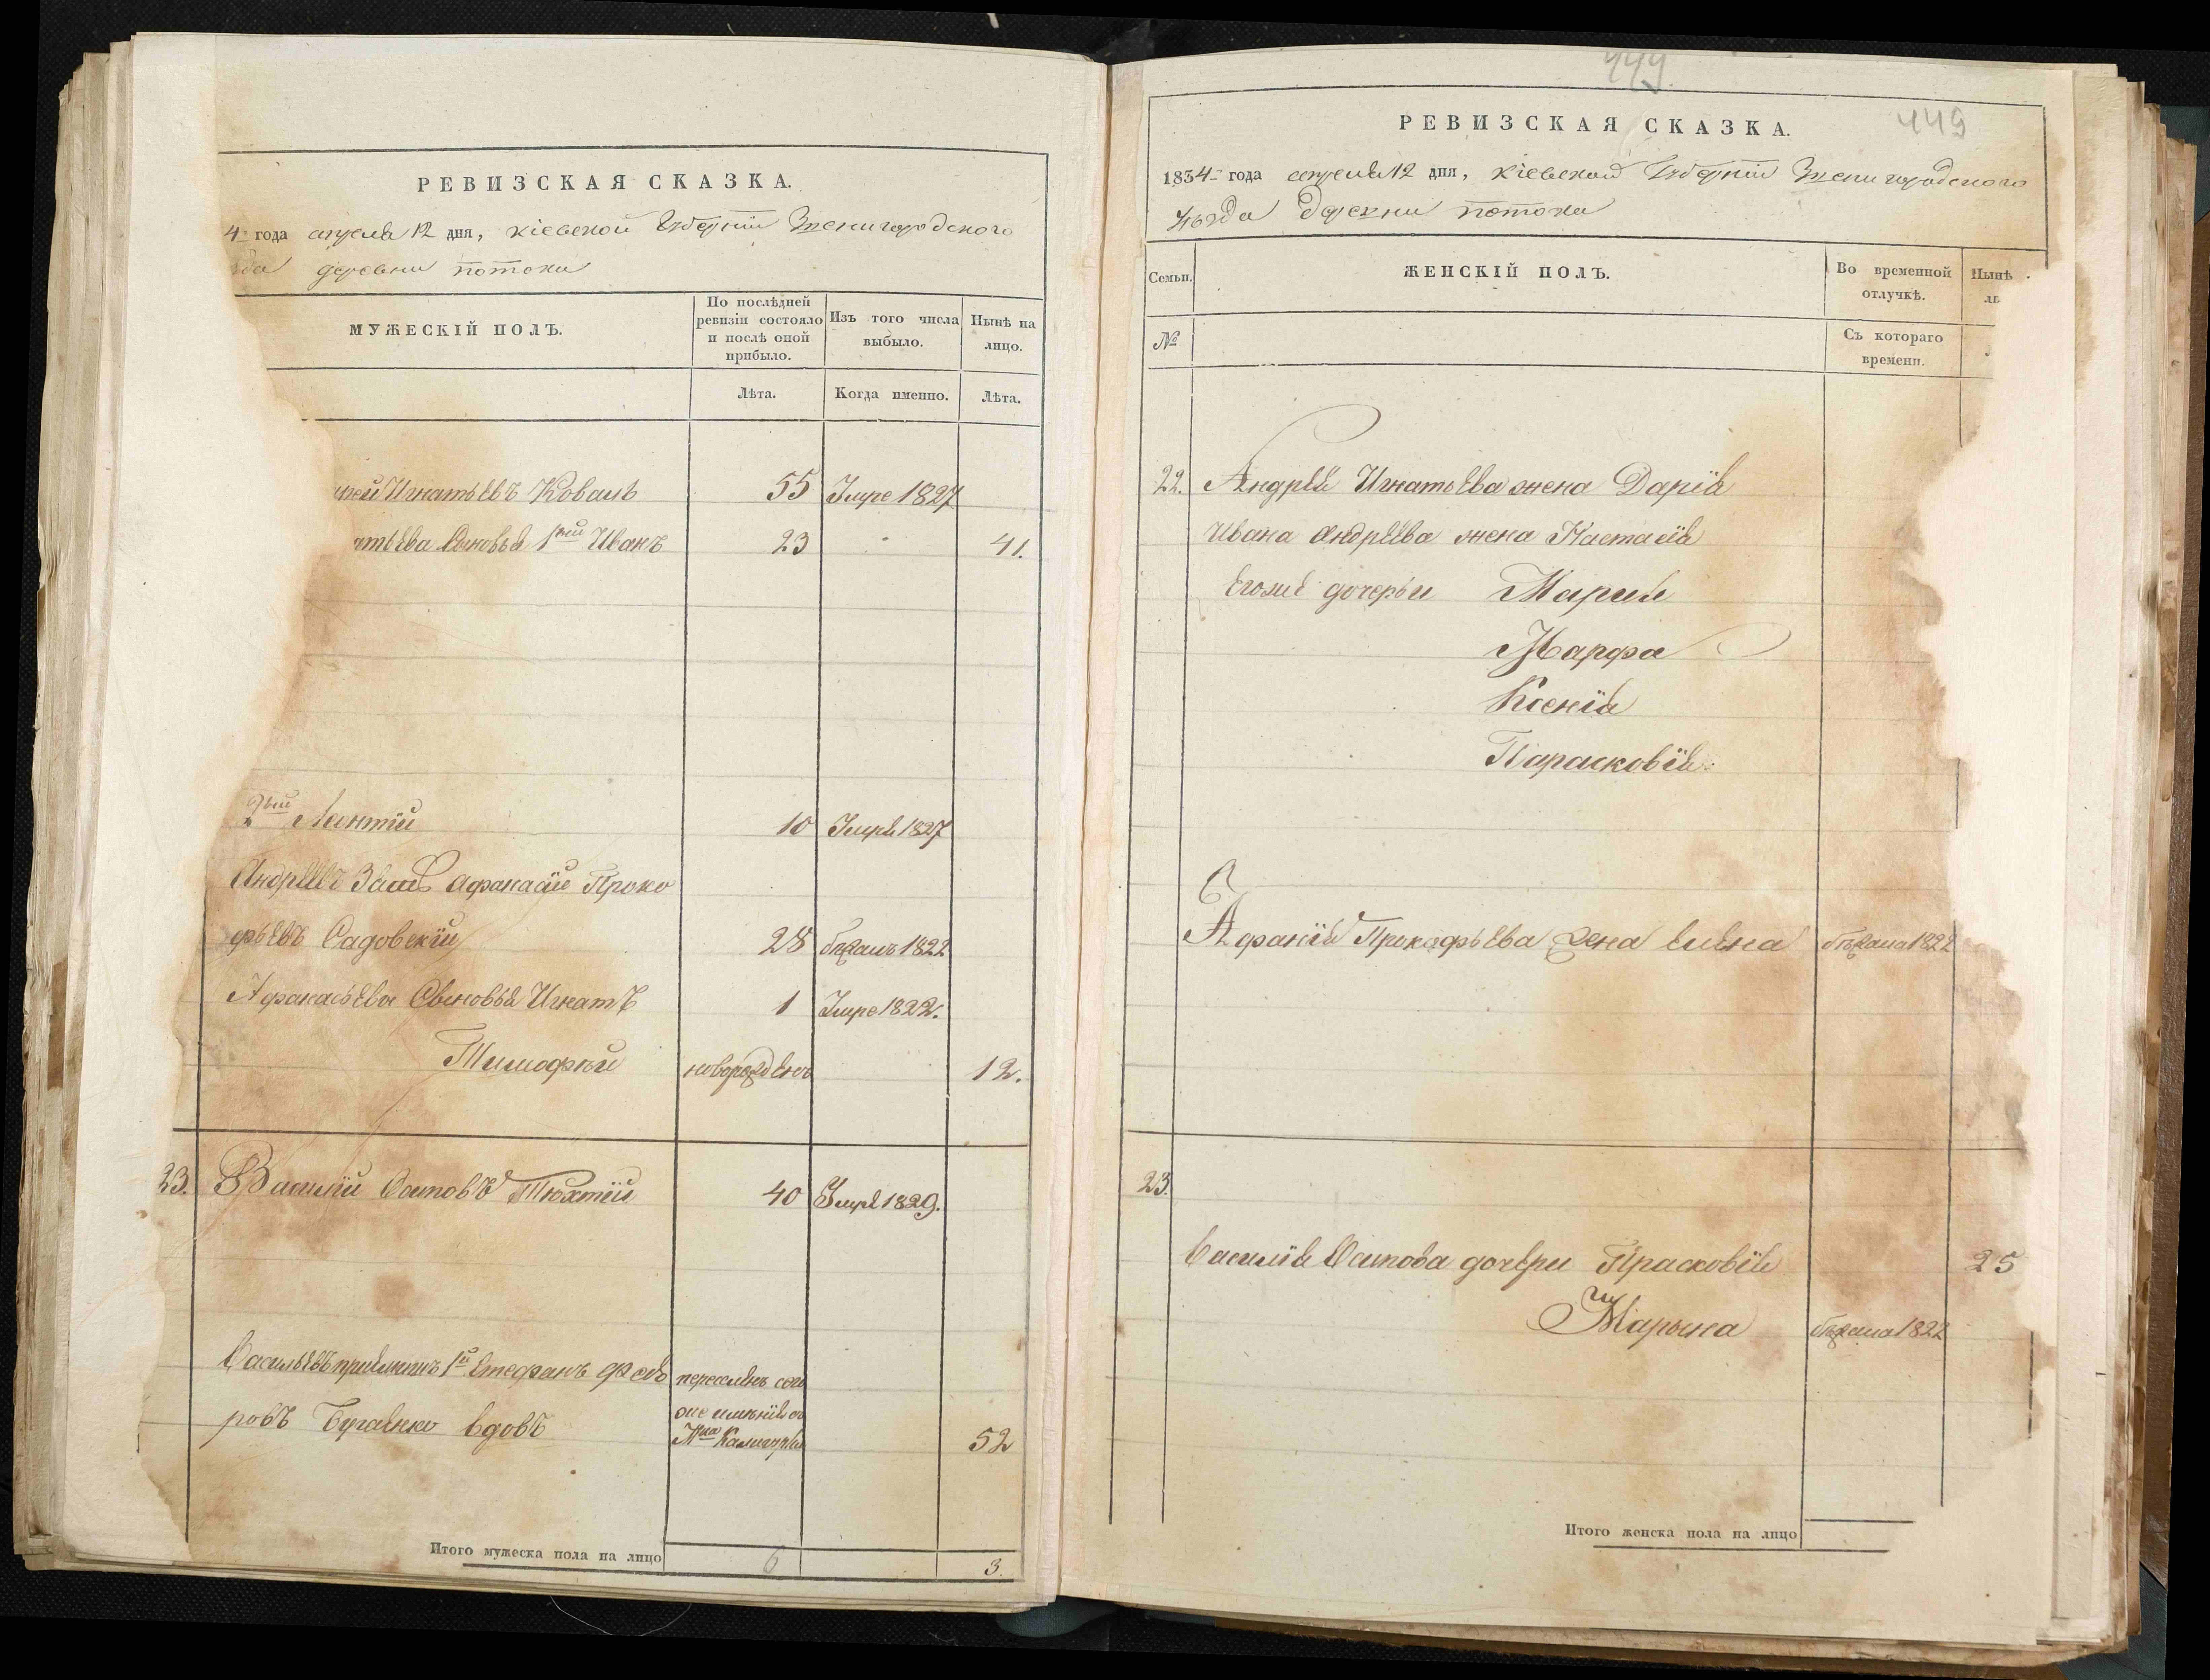 РЕВИЗСКАЯ СКАЗКА.
4 года апреля 12 дня, Кіевской Губерніи Звенигородского
деревни Потоки
МУЖЕСКІЙ ПОЛЪ.
По послѣдней ревизіи состояло и послѣ оной прибыло.
Изъ того числа выбыло.
Нынѣ на лицо.
Лѣта.
Когда именно.
Лѣта.
Игнатьевъ Коваль 55 Умре 1827
сыновья 1й Иванъ 23 41.
2й Леонтій 10 Умре 1827
Андреевъ Зять Афанасій Проко
фьевъ Садовскій 28 бѣжалъ 1822
Афанасьева Сыновья Игнатъ 1 Умре 1822.
Тимофѣй новорожденъ 12.
23. Василій Осиповъ Тюхтій 40 Умре 1829.
Васильевъ приемышъ 1й Стефанъ Федо
ровъ вдовъ 52
Итого мужеска пола на лицо 6 3.
449
449
РЕВИЗСКАЯ СКАЗКА.
1834 года апреля 12 дня, Кіевской Губерніи Звенигородского
уѣзда деревни Потоки
Семьи.
ЖЕНСКІЙ ПОЛЪ.
Во временной отлучкѣ.
Нынѣ
№
Съ котораго времени.
22. Андрея Игнатьева жена Дарія
Ивана Андреева жена Настасія
Егоже дочерьи Марія
Марфа
Ксенія
Парасковія
Афанія Прокофьева жена Елена бѣжала 1822
23.
Василія Осипова дочери Прасковія 25
Марьяна бѣжала 1822
Итого женска пола на лицо